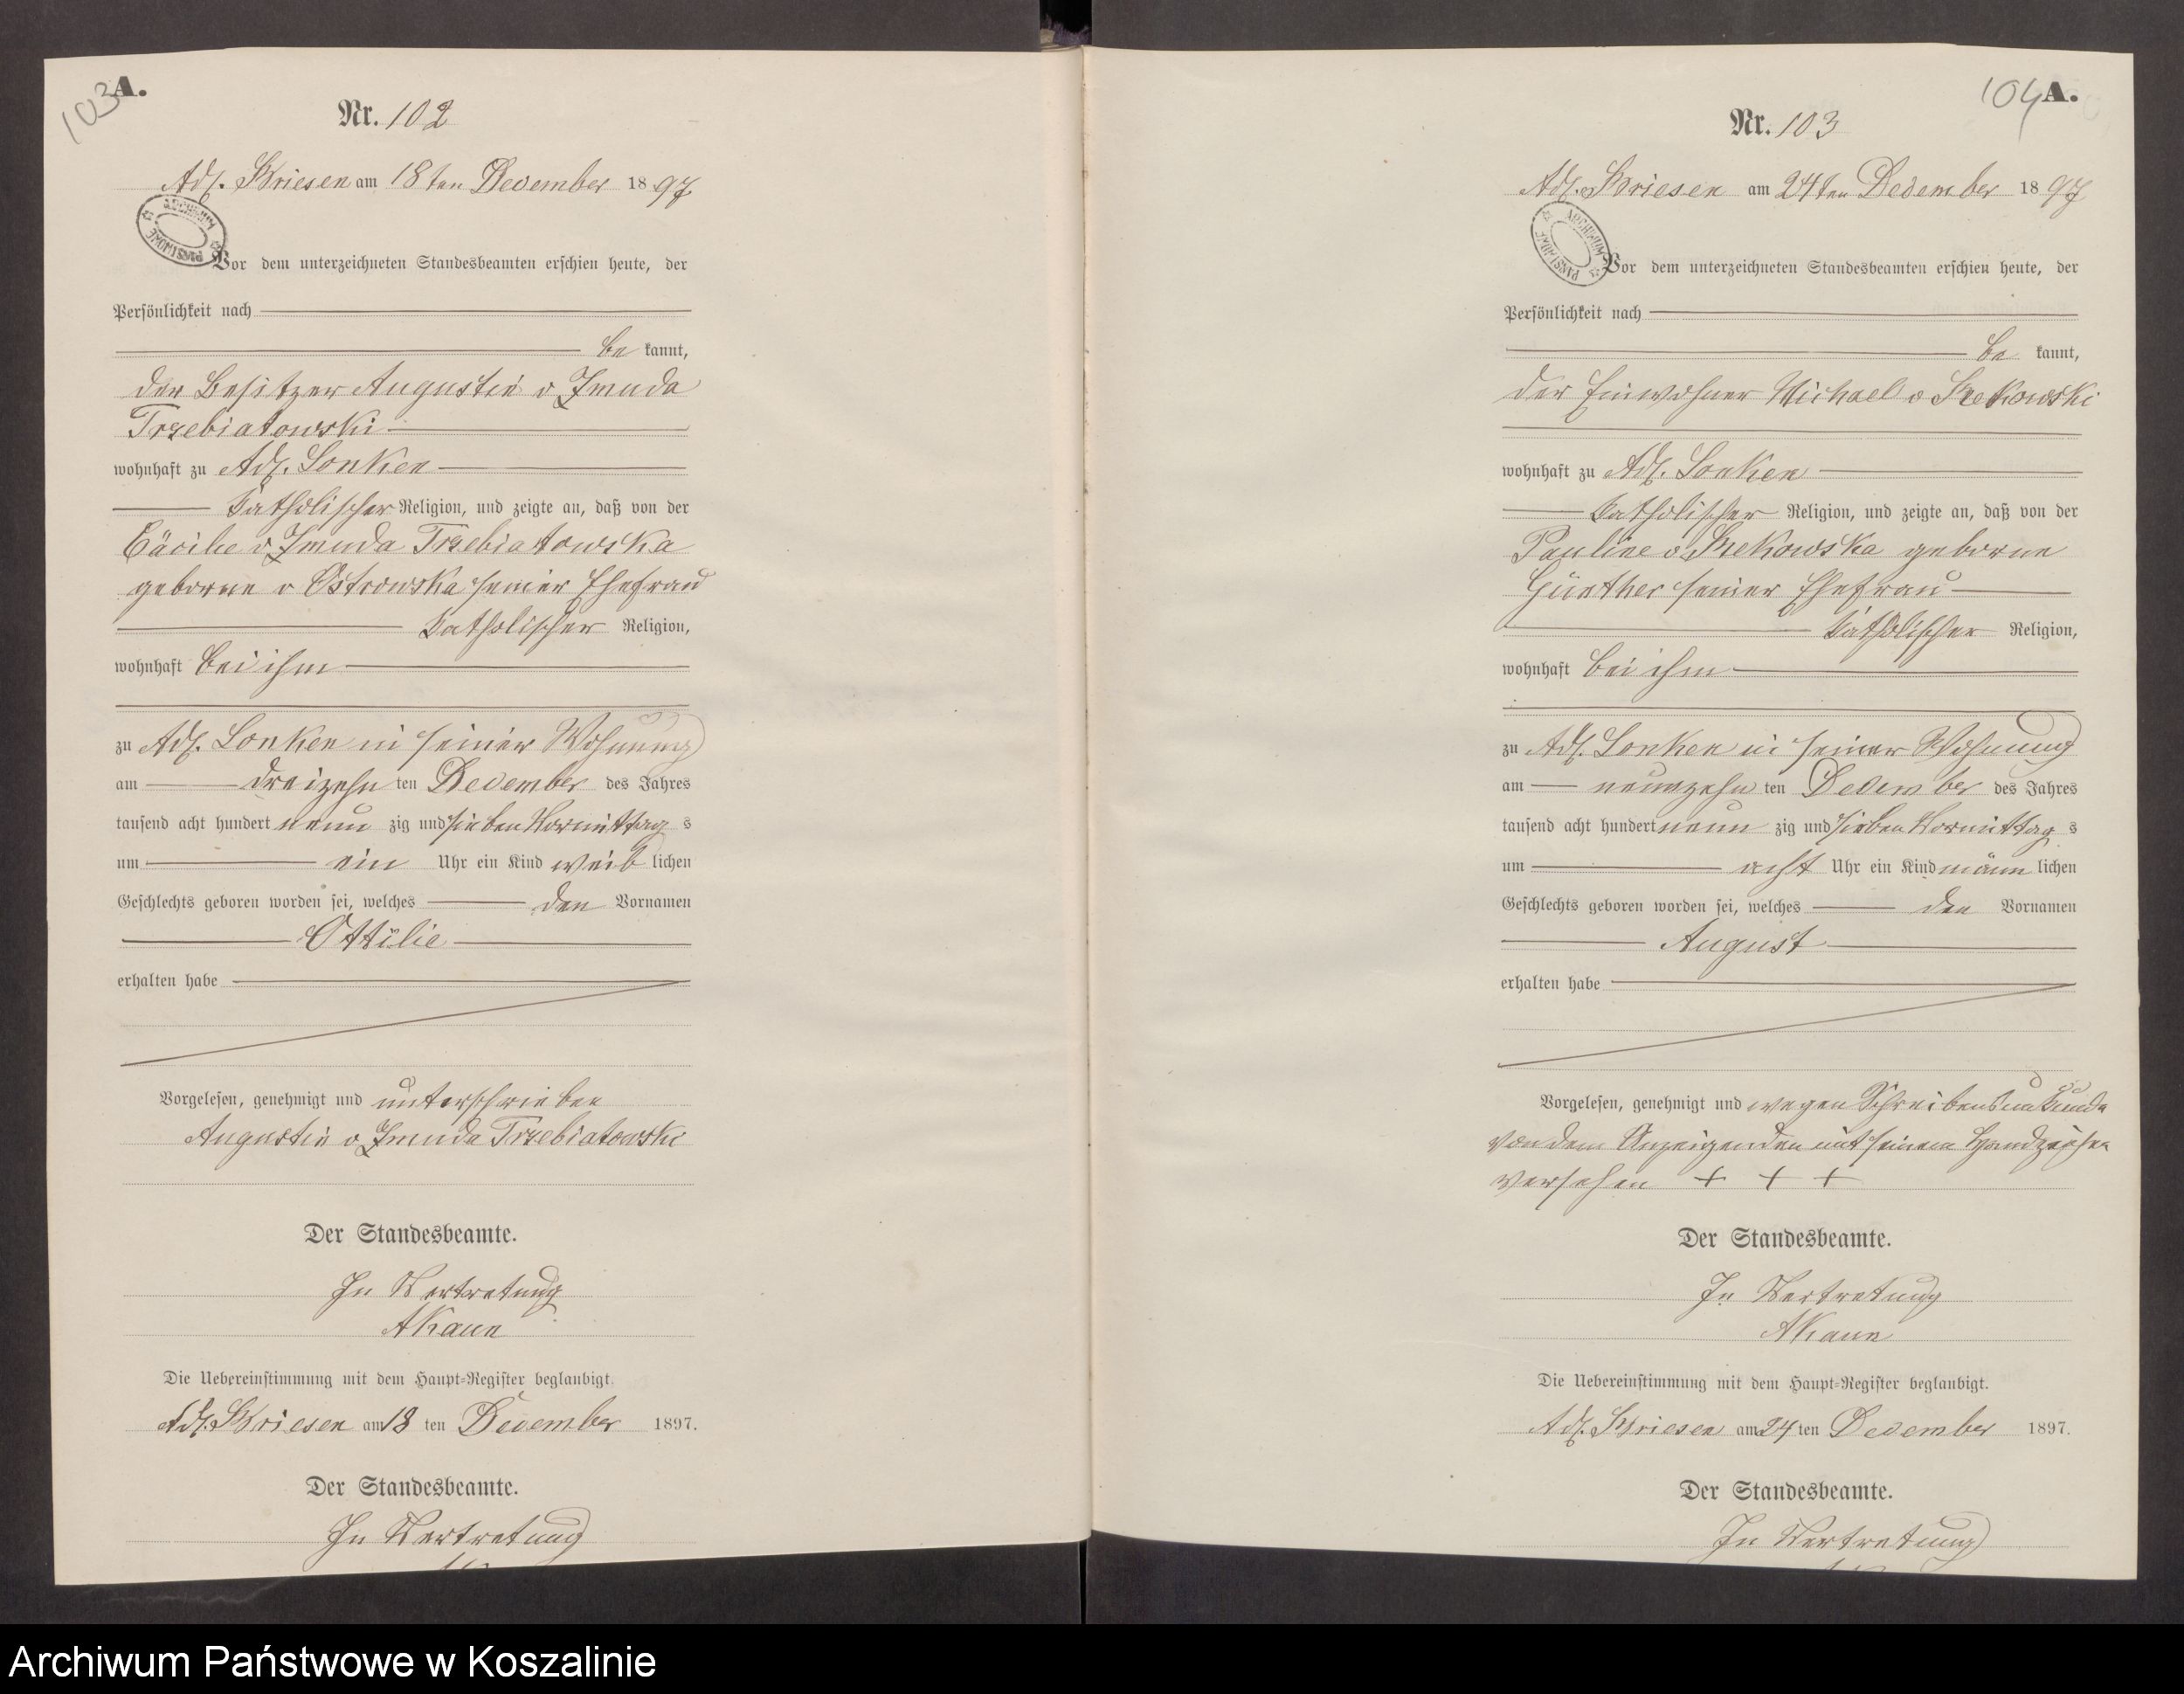 103 A.
Nr. 102
Adl. Briesen am 18ten December 1897
ARCHIWUM PAŃSTWOWE
Vor dem unterzeichneten Standesbeamten erschien heute, der
Persönlichkeit nach
be kannt,
der Besitzer Augustin v Zmuda
Trzebiatowski
wohnhaft zu Adl. Lonken
katholischer Religion, und zeigte an, daß von der
Cäcilie v Zmuda Trzebiatowska
geborne v Ostrowska seiner Ehefrau
katholischer Religion,
wohnhaft bei ihm
zu Adl. Lonken in seiner Wohnung
am dreizehn ten December des Jahres
tausend acht hundert neun zig und sieben Vormittag s
um ein Uhr ein Kind weib lichen
Geschlechts geboren worden sei, welches den Vornamen
Ottilie
erhalten habe
Vorgelesen, genehmigt und unterschrieben
Augustin v Zmuda Trzebiatowski
Der Standesbeamte.
In Vertretung
Die Uebereinstimmung mit dem Haupt-Register beglaubigt.
Adl. Briesen am 18 ten December 1897.
Der Standesbeamte.
In Vertretung
104 A.
Nr. 103
Adl. Briesen am 24ten December 1897
ARCHIWUM PAŃSTWOWE
Vor dem unterzeichneten Standesbeamten erschien heute, der
Persönlichkeit nach
be kannt,
der Einwohner Michael v
wohnhaft zu Adl. Lonken
katholischer Religion, und zeigte an, daß von der
Pauline v geborne
Günther seiner Ehefrau
katholischer Religion,
wohnhaft bei ihm
zu Adl. Lonken in seiner Wohnung
am neunzehn ten December des Jahres
tausend acht hundert neun zig und sieben Vormittag s
um acht Uhr ein Kind männ lichen
Geschlechts geboren worden sei, welches den Vornamen
August
erhalten habe
Vorgelesen, genehmigt und wegen Schreibensunkunde
von dem Anzeigenden mit seinem Handzeichen
versehen + + +
Der Standesbeamte.
In Vertretung
Die Uebereinstimmung mit dem Haupt-Register beglaubigt.
Adl. Briesen am 24 ten December 1897.
Der Standesbeamte.
In Vertretung
Archiwum Państwowe w Koszalinie